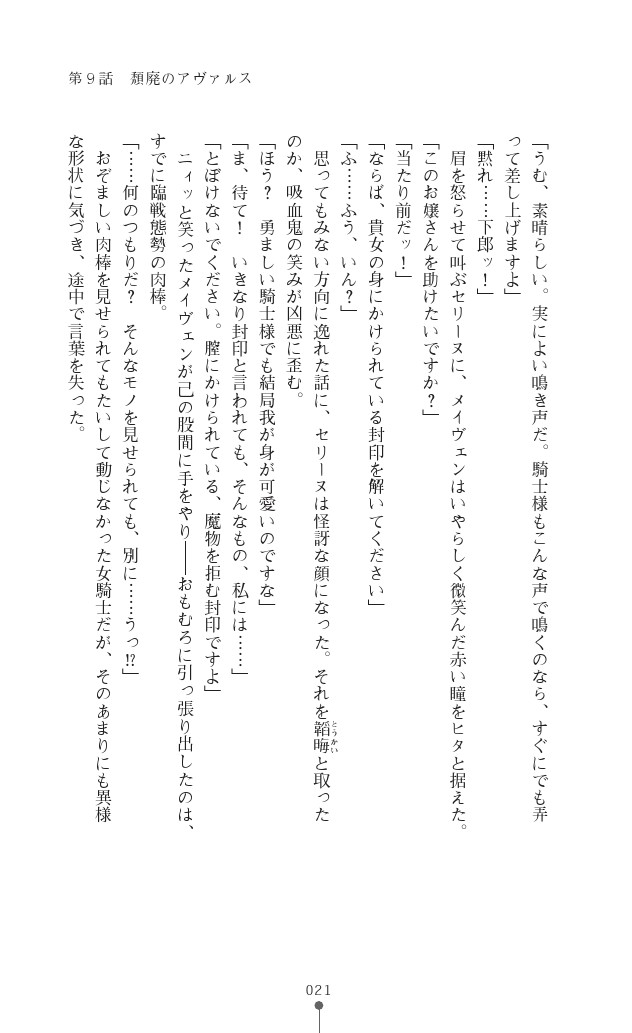 第９話　頽廃のアヴァルス
「うむ、素晴らしい。実によい鳴き声だ。騎士様もこんな声で鳴くのなら、すぐにでも弄
って差し上げますよ」
「黙れ……下郎ッ！」
　眉を怒らせて叫ぶセリーヌに、メイヴェンはいやらしく微笑んだ赤い瞳をヒタと据えた。
「このお嬢さんを助けたいですか？」
「当たり前だッ！」
「ならば、貴女の身にかけられている封印を解いてください」
「ふ……ふう、いん？」
　思ってもみない方向に逸れた話に、セリーヌは怪訝な顔になった。それを韜晦と取った
とうかい
のか、吸血鬼の笑みが凶悪に歪む。
「ほう？　勇ましい騎士様でも結局我が身が可愛いのですな」
「ま、待て！　いきなり封印と言われても、そんなもの、私には……」
「とぼけないでください。膣にかけられている、魔物を拒む封印ですよ」
　ニィッと笑ったメイヴェンが己の股間に手をやり――おもむろに引っ張り出したのは、
すでに臨戦態勢の肉棒。
「……何のつもりだ？　そんなモノを見せられても、別に……うっ!?」
　おぞましい肉棒を見せられてもたいして動じなかった女騎士だが、そのあまりにも異様
な形状に気づき、途中で言葉を失った。
021